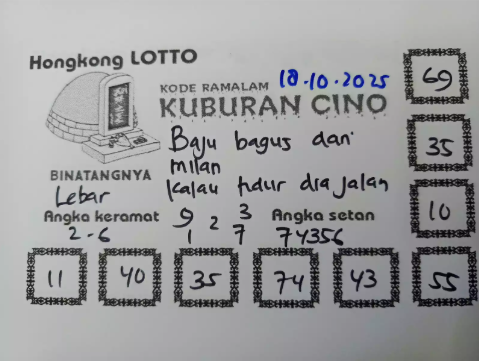 Hongkong LOTTO
KODE RAMALAM 18.10.2025
KUBURAN CINO
69
Baju bagus dari
milan
35
BINATANGNYA
Kalau tidur dia jalan
Lebar
10
Angka keramat 9 2 3 Angka setan
2-6 1 7 74356
11 40 35 74 43 55